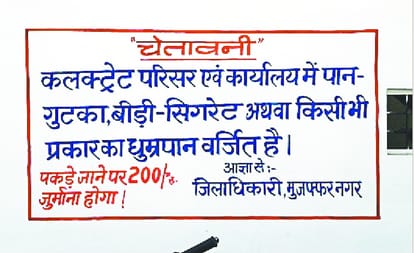 "चेतावनी"
कलक्ट्रेट परिसर एवं कार्यालय में पान-
गुटका,बीड़ी-सिगरेट अथवा किसी भी
प्रकार का धुम्रपान वर्जित है।
पकड़े जाने पर 200/-रु. आज्ञा से:-
जुर्माना होगा! जिलाधिकारी, मुजफ्फर नगर